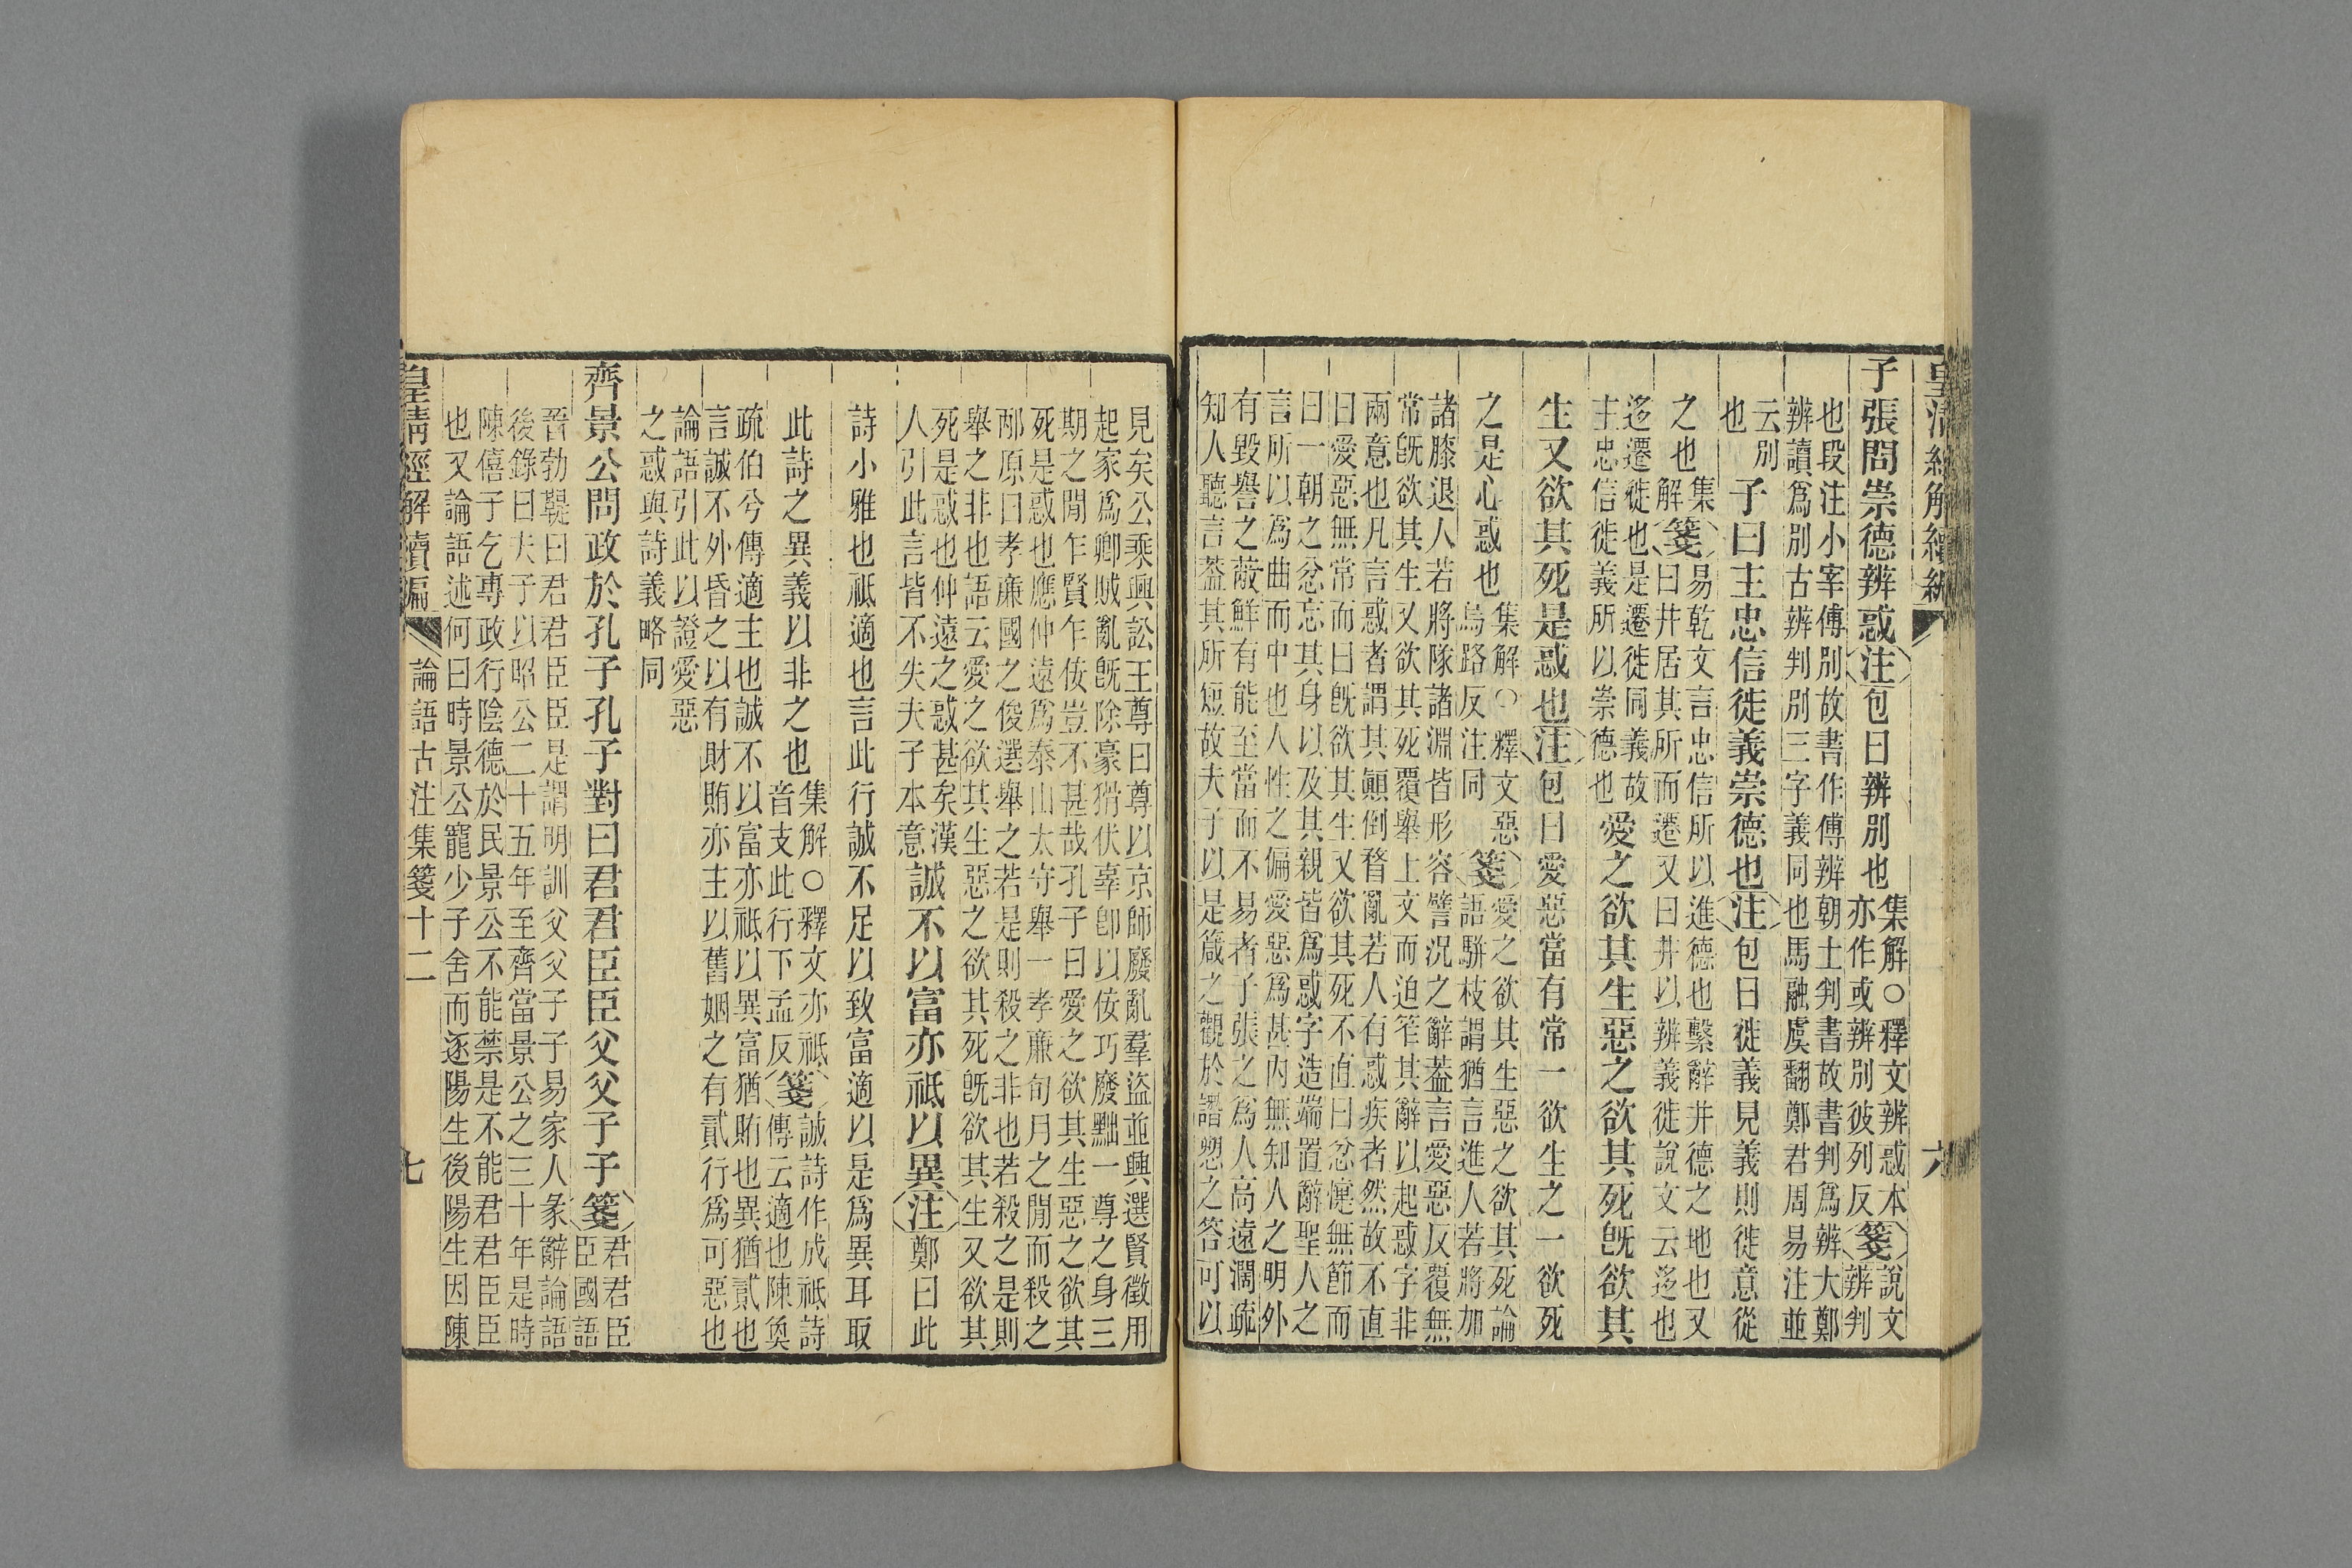 皇清經解續編 六
子張問崇德辨惑注包曰辨別也集解○釋文辨惑本
亦作或辨別彼列反箋說文
辨判
也段注小宰傅別故書作傅辨朝士判書故書判爲辨大鄭
辨讀爲別古辨判別三字義同也馬融虞翻鄭君周易注並
云別
也子曰主忠信徙義崇德也注包曰徙義見義則徙意從
之也集
解箋易乾文言忠信所以進德也繫辭井德之地也又
曰井居其所而遷又曰井以辨義徙說文云迻也
迻遷徙也是遷徙同義故
主忠信徙義所以崇德也愛之欲其生惡之欲其死旣欲其
生又欲其死是惑也注包曰愛惡當有常一欲生之一欲死
之是心惑也集解○釋文惡
烏路反注同箋愛之欲其生惡之欲其死論
語駢枝謂猶言進人若將加
諸膝退人若將隊諸淵皆形容譬況之辭葢言愛惡反覆無
常旣欲其生又欲其死覆舉上文而迫笮其辭以起惑字非
兩意也凡言惑者謂其顚倒瞀亂若人有惑疾者然故不直
曰愛惡無常而曰旣欲其生又欲其死不直曰忿懥無節而
曰一朝之忿忘其身以及其親皆爲惑字造端置辭聖人之
言所以爲曲而中也人性之偏愛惡爲甚內無知人之明外
有毀譽之蔽鮮有能至當而不易者子張之爲人高遠濶疏
知人聽言葢其所短故夫子以是箴之觀於譖愬之答可以
見矣公乘興訟王尊曰尊以京師廢亂羣盜並興選賢徵用
起家爲卿賊亂旣除豪猾伏辜卽以佞巧廢黜一尊之身三
期之閒乍賢乍佞豈不甚哉孔子曰愛之欲其生惡之欲其
死是惑也應仲遠爲泰山太守舉一孝廉旬月之閒而殺之
邴原曰孝廉國之俊選舉之若是則殺之非也若殺之是則
舉之非也語云愛之欲其生惡之欲其死旣欲其生又欲其
死是惑也仲遠之惑甚矣漢
人引此言皆不失夫子本意誠不以富亦祗以異注鄭曰此
詩小雅也祗適也言此行誠不足以致富適以是爲異耳取
此詩之異義以非之也集解○釋文亦祗
音支此行下孟反箋誠詩作成祗詩
傳云適也陳奐
疏伯兮傳適主也誠不以富亦祗以異富猶賄也異猶貳也
言誠不外昏之以有財賄亦主以舊姻之有貳行爲可惡也
論語引此以證愛惡
之惑與詩義略同
齊景公問政於孔子孔子對曰君君臣臣父父子子箋君君臣
臣國語
晉勃鞮曰君君臣臣是謂明訓父父子子易家人彖辭論語
後錄曰夫子以昭公二十五年至齊當景公之三十年是時
陳僖子乞專政行陰德於民景公不能禁是不能君君臣臣
也又論語述何曰時景公寵少子舍而逐陽生後陽生因陳
皇清經解續編 論語古注集箋十二 七